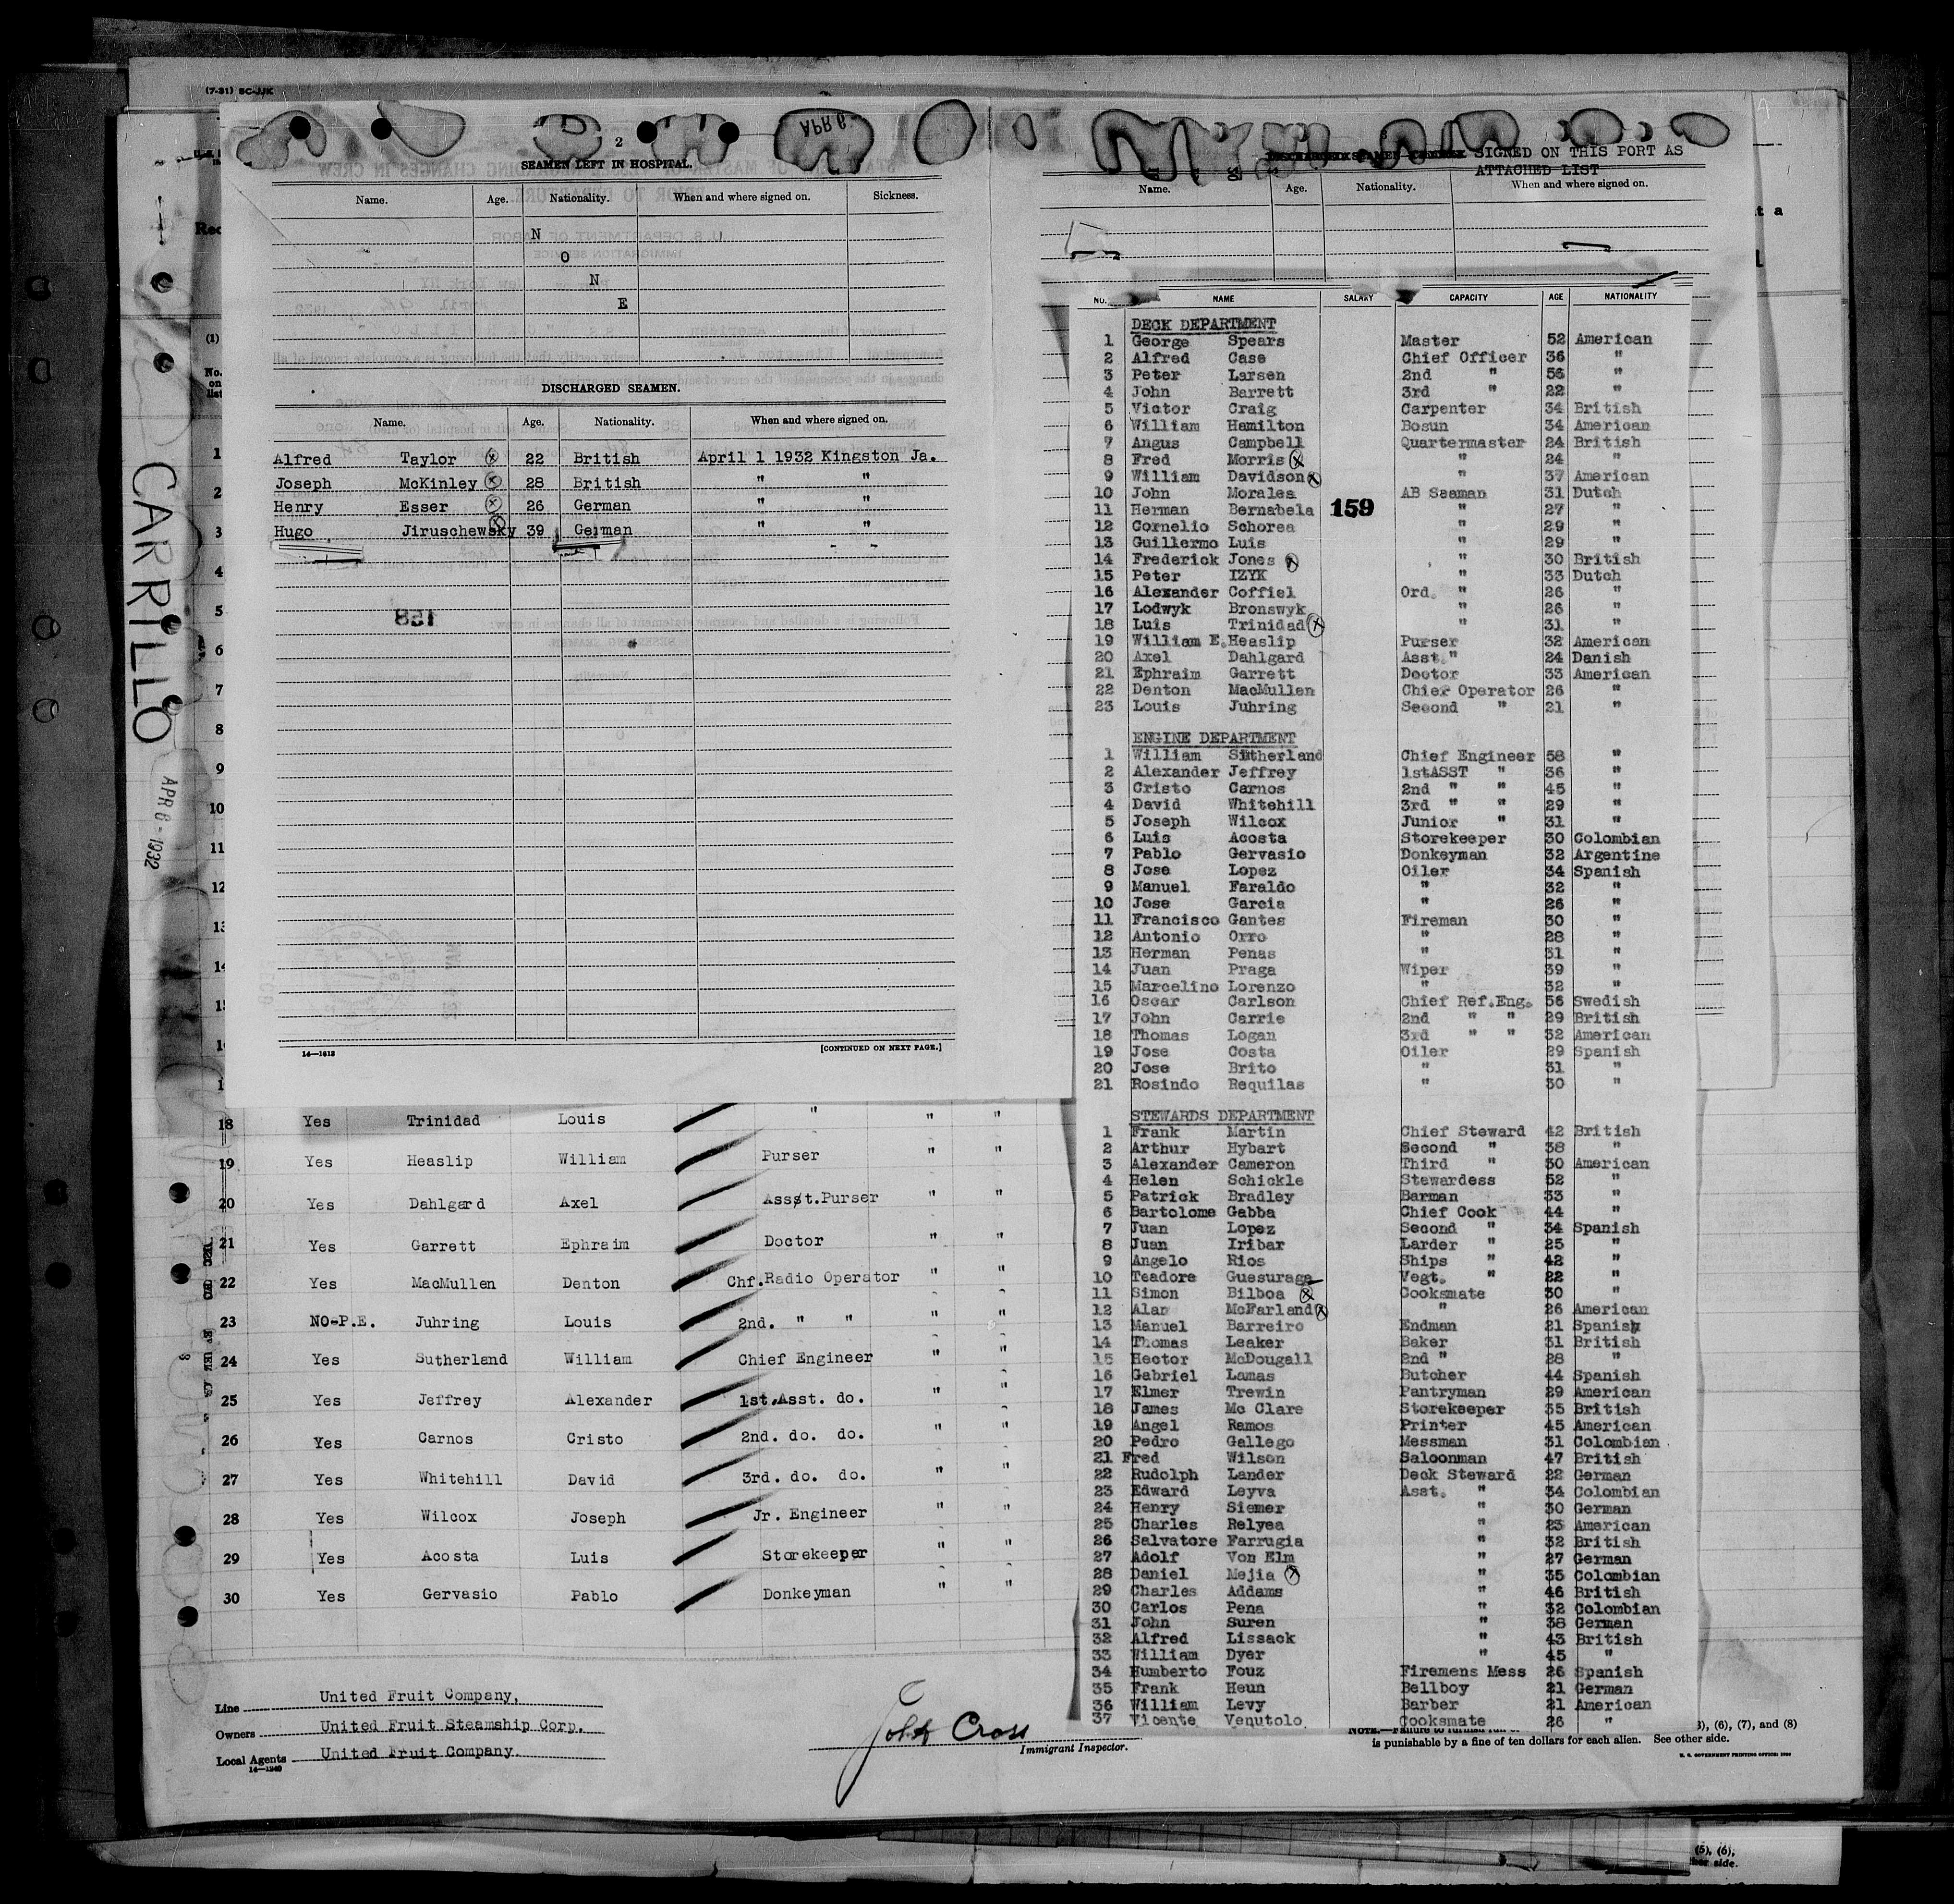 (7-31) SC-JJK
CARRILLO
APR 6 - 1932
APR 6 -
2
SEAMEN LEFT IN HOSPITAL.
Name. Age. Nationality. When and where signed on. Sickness.
N
O
N
E
DISCHARGED SEAMEN.
Name. Age. Nationality. When and where signed on.
Alfred Taylor 22 British April 1 1932 Kingston Ja.
Joseph McKinley 28 British " "
Henry Esser 26 German " "
Hugo Jiruschewsky 39 German " "
158
14—1613 [CONTINUED ON NEXT PAGE.]
SIGNED ON THIS PORT AS
ATTACHED LIST
Name. Age. Nationality. When and where signed on.
NO. NAME SALARY CAPACITY AGE NATIONALITY
DECK DEPARTMENT
1 George Spears Master 52 American
2 Alfred Case Chief Officer 36 "
3 Peter Larsen 2nd " 56 "
4 John Barrett 3rd " 22 "
5 Victor Craig Carpenter 34 British
6 William Hamilton Bosun 34 American
7 Angus Campbell Quartermaster 24 British
8 Fred Morris " 24 "
9 William Davidson " 37 American
10 John Morales AB Seaman 31 Dutch
11 Herman Bernabela 159 " 27 "
12 Cornelio Schorea " 29 "
13 Guillermo Luis " 29 "
14 Frederick Jones " 30 British
15 Peter IZYK " 33 Dutch
16 Alexander Coffiel Ord. " 26 "
17 Lodwyk Bronswyk " 26 "
18 Luis Trinidad " 31 "
19 William E. Heaslip Purser 32 American
20 Axel Dahlgard Asst." 24 Danish
21 Ephraim Garrett Doctor 33 American
22 Denton MacMullen Chief Operator 26 "
23 Louis Juhring Second " 21 "
ENGINE DEPARTMENT
1 William Sutherland Chief Engineer 58 "
2 Alexander Jeffrey 1stASST " 36 "
3 Cristo Carnos 2nd " " 45 "
4 David Whitehill 3rd " " 29 "
5 Joseph Wilcox Junior " 31 "
6 Luis Acosta Storekeeper 30 Colombian
7 Pablo Gervasio Donkeyman 32 Argentine
8 Jose Lopez Oiler 34 Spanish
9 Manuel Faraldo " 32 "
10 Jose Garcia " 26 "
11 Francisco Gantes Fireman 30 "
12 Antonio Orro " 28 "
13 Herman Penas " 31 "
14 Juan Praga Wiper 39 "
15 Marcelino Lorenzo " 32 "
16 Oscar Carlson Chief Ref.Eng. 56 Swedish
17 John Carrie 2nd " " 29 British
18 Thomas Logan 3rd " " 32 American
19 Jose Costa Oiler 29 Spanish
20 Jose Brito " 31 "
21 Rosindo Requilas " 30 "
STEWARDS DEPARTMENT
1 Frank Martin Chief Steward 42 British
2 Arthur Hybart Second " 38 "
3 Alexander Cameron Third " 30 American
4 Helen Schickle Stewardess 52 "
5 Patrick Bradley Barman 33 "
6 Bartolome Gabba Chief Cook 44 "
7 Juan Lopez Second " 34 Spanish
8 Juan Iribar Larder " 25 "
9 Angelo Rios Ships " 42 "
10 Teadore Guesuraga Vegt. " 22 "
11 Simon Bilboa Cooksmate 30 "
12 Alan McFarland " 26 American
13 Manuel Barreiro Endman 21 Spanish
14 Thomas Leaker Baker 31 British
15 Hector McDougall 2nd " 28 "
16 Gabriel Lamas Butcher 44 Spanish
17 Elmer Trewin Pantryman 29 American
18 James Mc Clare Storekeeper 35 British
19 Angel Ramos Printer 45 American
20 Pedro Gallego Messman 31 Colombian
21 Fred Wilson Saloonman 47 British
22 Rudolph Lander Deck Steward 22 German
23 Edward Leyva Asst. " 34 Colombian
24 Henry Siemer " 30 German
25 Charles Relyea " 23 American
26 Salvatore Farrugia " 32 British
27 Adolf Von Elm " 27 German
28 Daniel Mejia " 35 Colombian
29 Charles Addams " 46 British
30 Carlos Pena " 32 Colombian
31 John Suren " 38 German
32 Alfred Lissack " 43 British
33 William Dyer " 45 "
34 Humberto Fouz Firemens Mess 26 Spanish
35 Frank Heun Bellboy 21 German
36 William Levy Barber 21 American
37 Vicente Venutolo Cooksmate 26 "
(1)
No. on list
1
2
3
4
5
6
7
8
9
10
11
12
13
14
18 Yes Trinidad Louis " " "
19 Yes Heaslip William Purser " "
20 Yes Dahlgard Axel Asst.Purser " "
21 Yes Garrett Ephraim Doctor " "
22 Yes MacMullen Denton Chf.Radio Operator " "
23 NO-P.E. Juhring Louis 2nd. " " " "
24 Yes Sutherland William Chief Engineer " "
25 Yes Jeffrey Alexander 1st.Asst. do. " "
26 Yes Carnos Cristo 2nd. do. do. " "
27 Yes Whitehill David 3rd. do. do. " "
28 Yes Wilcox Joseph Jr. Engineer " "
29 Yes Acosta Luis Storekeeper " "
30 Yes Gervasio Pablo Donkeyman " "
Line United Fruit Company,
Owners United Fruit Steamship Corp.
Local Agents United Fruit Company.
14—1240
John Cross
Immigrant Inspector.
(6), (7), and (8)
is punishable by a fine of ten dollars for each alien. See other side.
U. S. GOVERNMENT PRINTING OFFICE
(5), (6),
side.